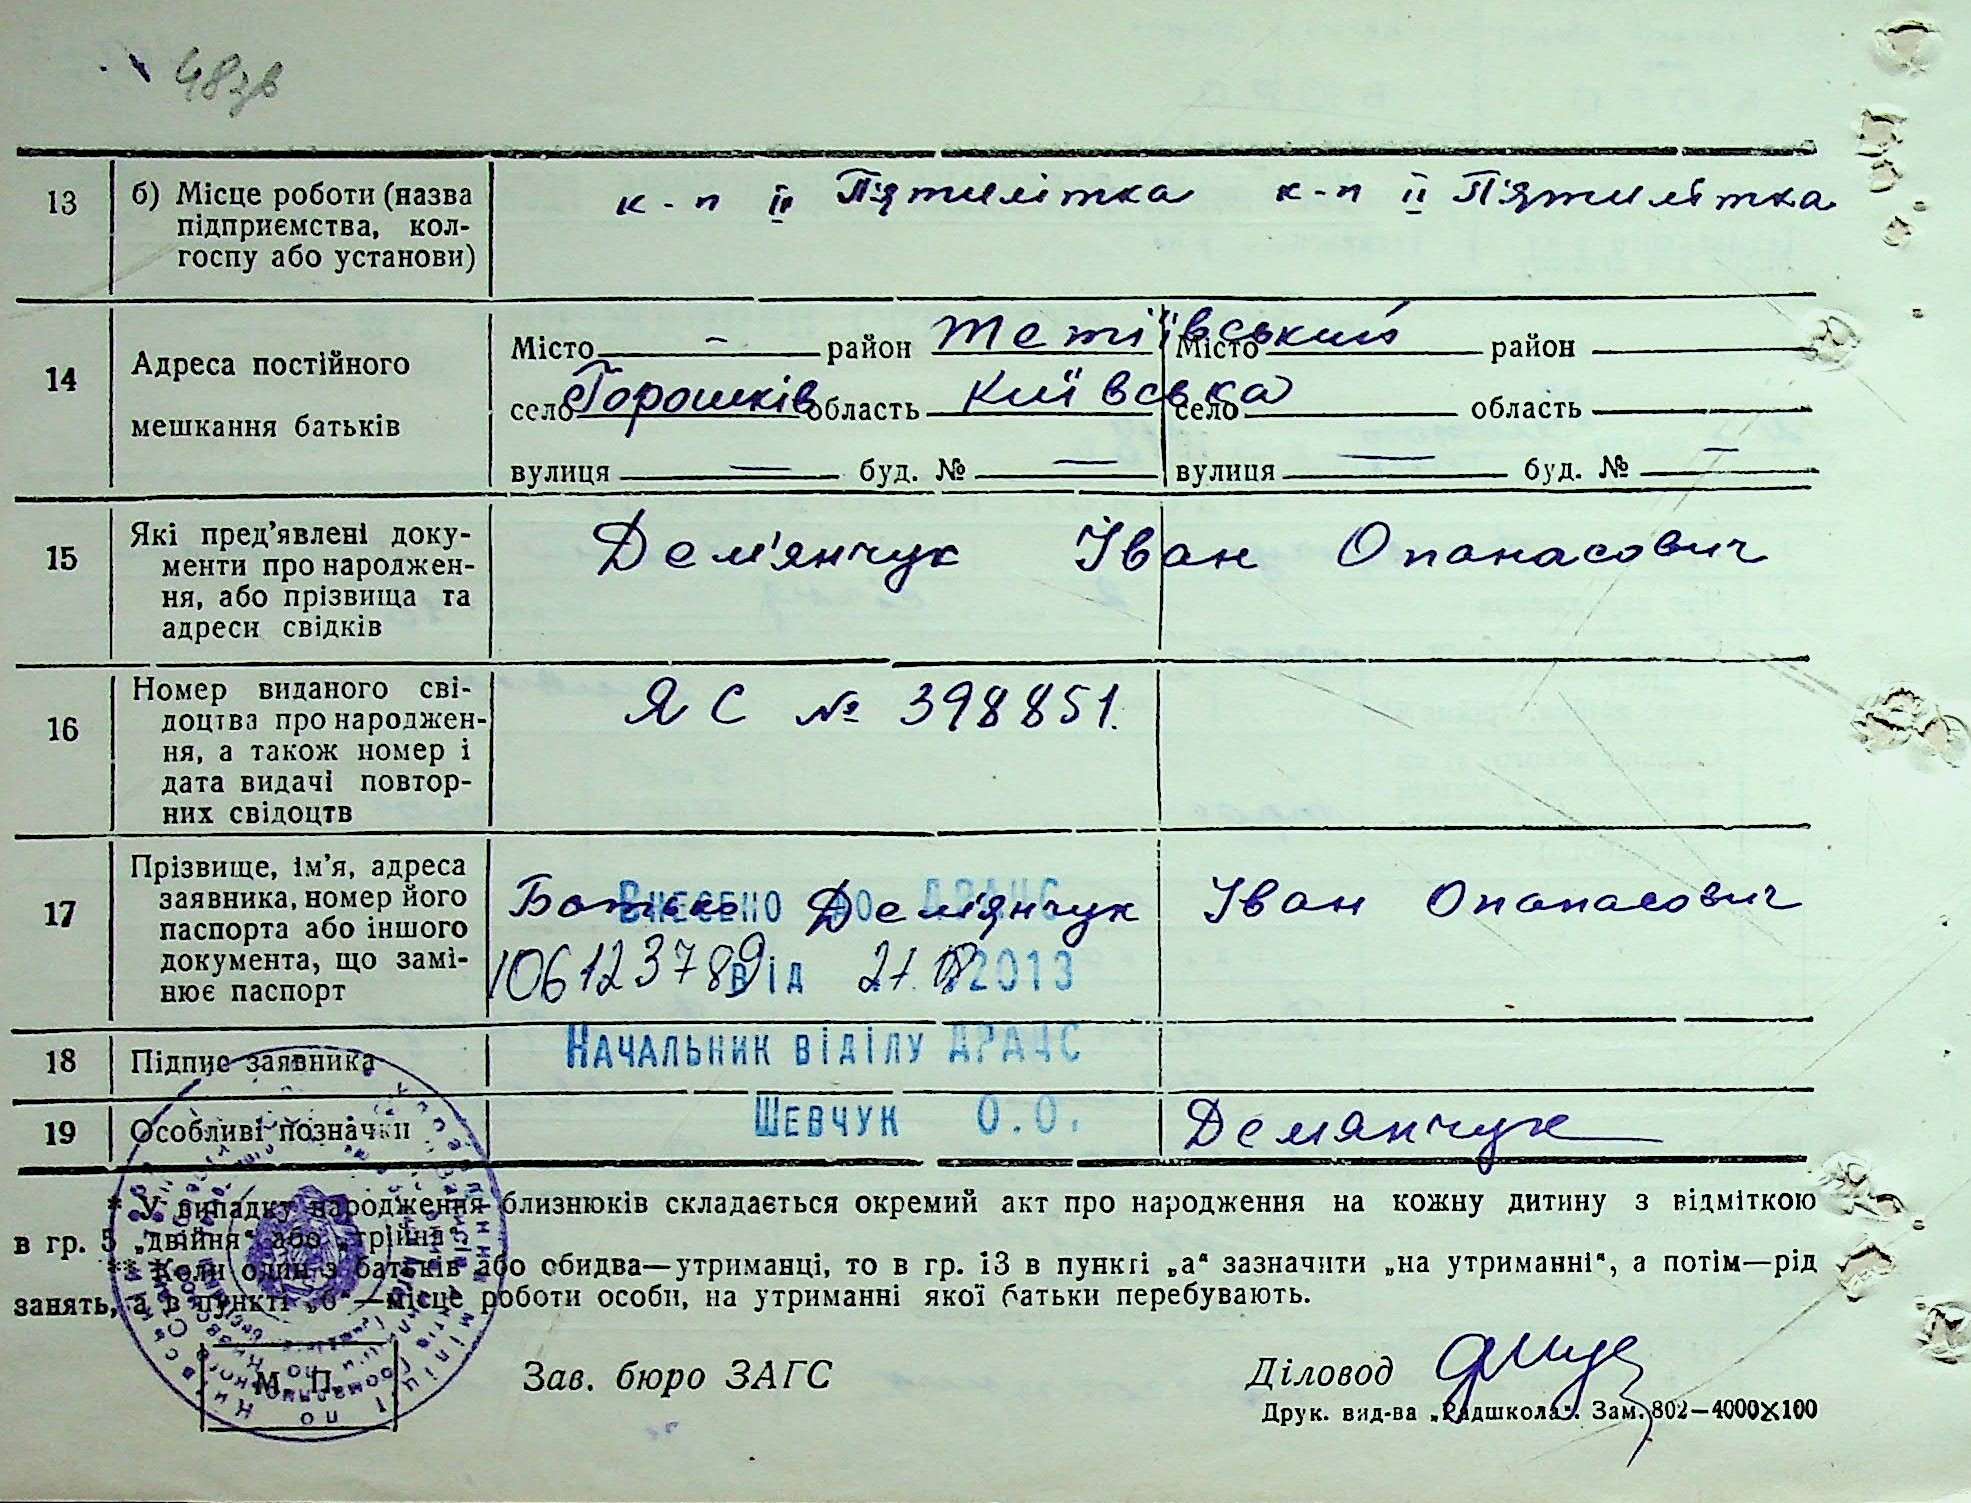 48зв
13 б) Місце роботи (назва
підприємства, кол-
госпу або установи)
к-п II П'ятилітка к-п II П'ятилітка
14 Адреса постійного
мешкання батьків
Місто — район Тетіївський Місто район
село Горошків область Київська село область
вулиця — буд. № — вулиця — буд. № —
15 Які пред'явлені доку-
менти про народжен-
ня, або прізвища та
адреси свідків
Дем'янчук Іван Опанасович
16 Номер виданого сві-
доцтва про народжен-
ня, а також номер і
дата видачі повтор-
них свідоцтв
ЯС № 398851.
17 Прізвище, ім'я, адреса
заявника, номер його
паспорта або іншого
документа, що замі-
нює паспорт
Батько Дем'янчук Іван Опанасович
Внесено до ДРАЦС
106123789 від 21.08 2013
18 Підпис заявника
Начальник відділу ДРАЦС
19 Особливі позначки
Шевчук О.О.
Демянчук
* У випадку народження близнюків складається окремий акт про народження на кожну дитину з відміткою
в гр. 5 „двійня“ або „трійня“.
** Коли один з батьків або обидва—утриманці, то в гр. 13 в пункті „а“ зазначити „на утриманні“, а потім—рід
занять, а в пункті „б“—місце роботи особи, на утриманні якої батьки перебувають.
М. П.
Зав. бюро ЗАГС
Діловод
Друк. вид-ва „Радшкола“. Зам. 802—4000×100